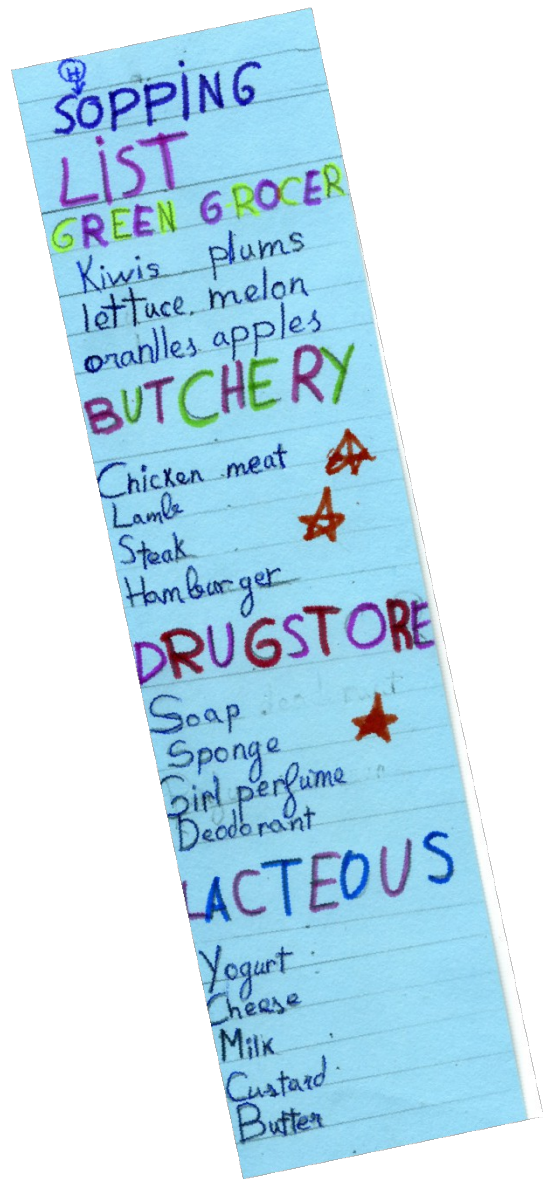 H
SOPPING
LIST
GREEN GROCER
Kiwis plums
lettuce. melon
oranlles apples
BUTCHERY
Chicken meat
Lamb
Steak
Hamburger
DRUGSTORE
Soap
Sponge
Girl perfume
Deodorant
LACTEOUS
Yogurt
Cheese
Milk
Custard
Butter